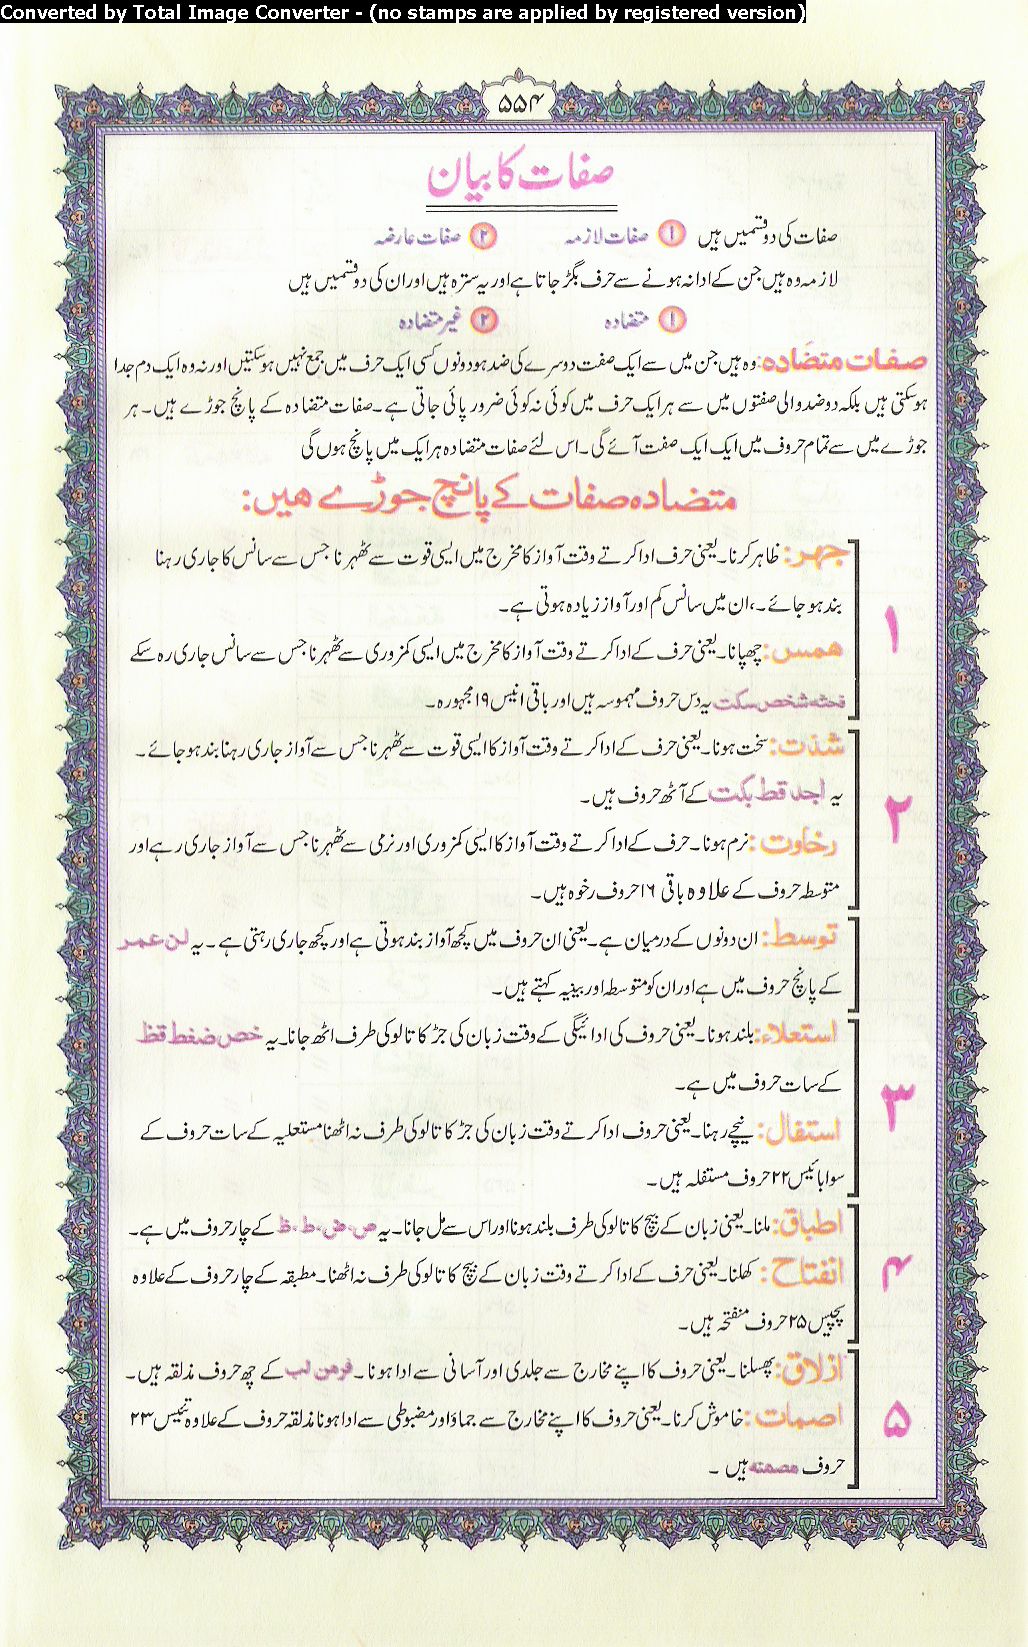 Converted by Total Image Converter - (no stamps are applied by registered version)
۵۵۴
صفات کا بیان
صفات کی دو قسمیں ہیں ۱ صفات لازمہ ۲ صفات عارضہ
لازمہ وہ ہیں جن کے ادا نہ ہونے سے حرف بگڑ جاتا ہے اور یہ سترہ ہیں اور ان کی دو قسمیں ہیں
۱ متضادہ ۲ غیر متضادہ
صفات متضادہ: وہ ہیں جن میں سے ایک صفت دوسرے کی ضد ہو دونوں کسی ایک حرف میں جمع نہیں ہو سکتیں اور نہ وہ ایک دم جدا
ہو سکتی ہیں بلکہ دو ضد والی صفتوں میں سے ہر ایک حرف میں کوئی نہ کوئی ضرور پائی جاتی ہے۔ صفات متضادہ کے پانچ جوڑے ہیں۔ ہر
جوڑے میں سے تمام حروف میں ایک ایک صفت آئے گی۔ اس لئے صفات متضادہ ہر ایک میں پانچ ہوں گی
متضادہ صفات کے پانچ جوڑے ھیں:
جہر: ظاہر کرنا۔ یعنی حرف ادا کرتے وقت آواز کا مخرج میں ایسی قوت سے ٹھہرنا جس سے سانس کا جاری رہنا
بند ہو جائے۔، ان میں سانس کم اور آواز زیادہ ہوتی ہے۔
۱
ھمس: چھپانا۔ یعنی حرف کے ادا کرتے وقت آواز کا مخرج میں ایسی کمزوری سے ٹھہرنا جس سے سانس جاری رہ سکے
فحثه شخص سکت یہ دس حروف مہموسہ ہیں اور باقی انیس ۱۹ مجہورہ۔
شدّت: سخت ہونا۔ یعنی حرف کے ادا کرتے وقت آواز کا ایسی قوت سے ٹھہرنا جس سے آواز جاری رہنا بند ہو جائے۔
یہ اجد قط بکت کے آٹھ حروف ہیں۔
۲
رخاوت: نرم ہونا۔ حرف کے ادا کرتے وقت آواز کا ایسی کمزوری اور نرمی سے ٹھہرنا جس سے آواز جاری رہے اور
متوسطہ حروف کے علاوہ باقی ۱۶ حروف رخوہ ہیں۔
توسط: ان دونوں کے درمیان ہے۔ یعنی ان حروف میں کچھ آواز بند ہوتی ہے اور کچھ جاری رہتی ہے۔ یہ لن عمر
کے پانچ حروف میں ہے اور ان کو متوسطہ اور بینیہ کہتے ہیں۔
استعلاء: بلند ہونا۔ یعنی حروف کی ادائیگی کے وقت زبان کی جڑ کا تالو کی طرف اٹھ جانا۔ یہ خص ضغط قظ
کے سات حروف میں ہے۔
۳
استفال: نیچے رہنا۔ یعنی حروف ادا کرتے وقت زبان کی جڑ کا تالو کی طرف نہ اٹھنا مستعلیہ کے سات حروف کے
سوا بائیس ۲۲ حروف مستفلہ ہیں۔
اطباق: ملنا۔ یعنی زبان کے بیچ کا تالو کی طرف بلند ہونا اور اس سے مل جانا۔ یہ ص، ض، ط، ظ کے چار حروف میں ہے۔
۴
انفتاح: کھلنا۔ یعنی حرف کے ادا کرتے وقت زبان کے بیچ کا تالو کی طرف نہ اٹھنا۔ مطبقہ کے چار حروف کے علاوہ
پچیس ۲۵ حروف منفتحہ ہیں۔
ازلاق: پھسلنا۔ یعنی حروف کا اپنے مخارج سے جلدی اور آسانی سے ادا ہونا۔ فرمن لب کے چھ حروف مذلقہ ہیں۔
۵
اصمات: خاموش کرنا۔ یعنی حروف کا اپنے مخارج سے جماؤ اور مضبوطی سے ادا ہونا مذلقہ حروف کے علاوہ تئیس ۲۳
حروف مصمته ہیں۔